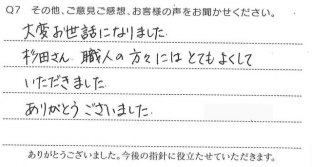 Q7 その他、ご意見ご感想、お客様の声をお聞かせください。
大変お世話になりました
杉田さん 職人の方々には とてもよくして
いただきました
ありがとうございました
ありがとうございました。今後の指針に役立たせていただきます。